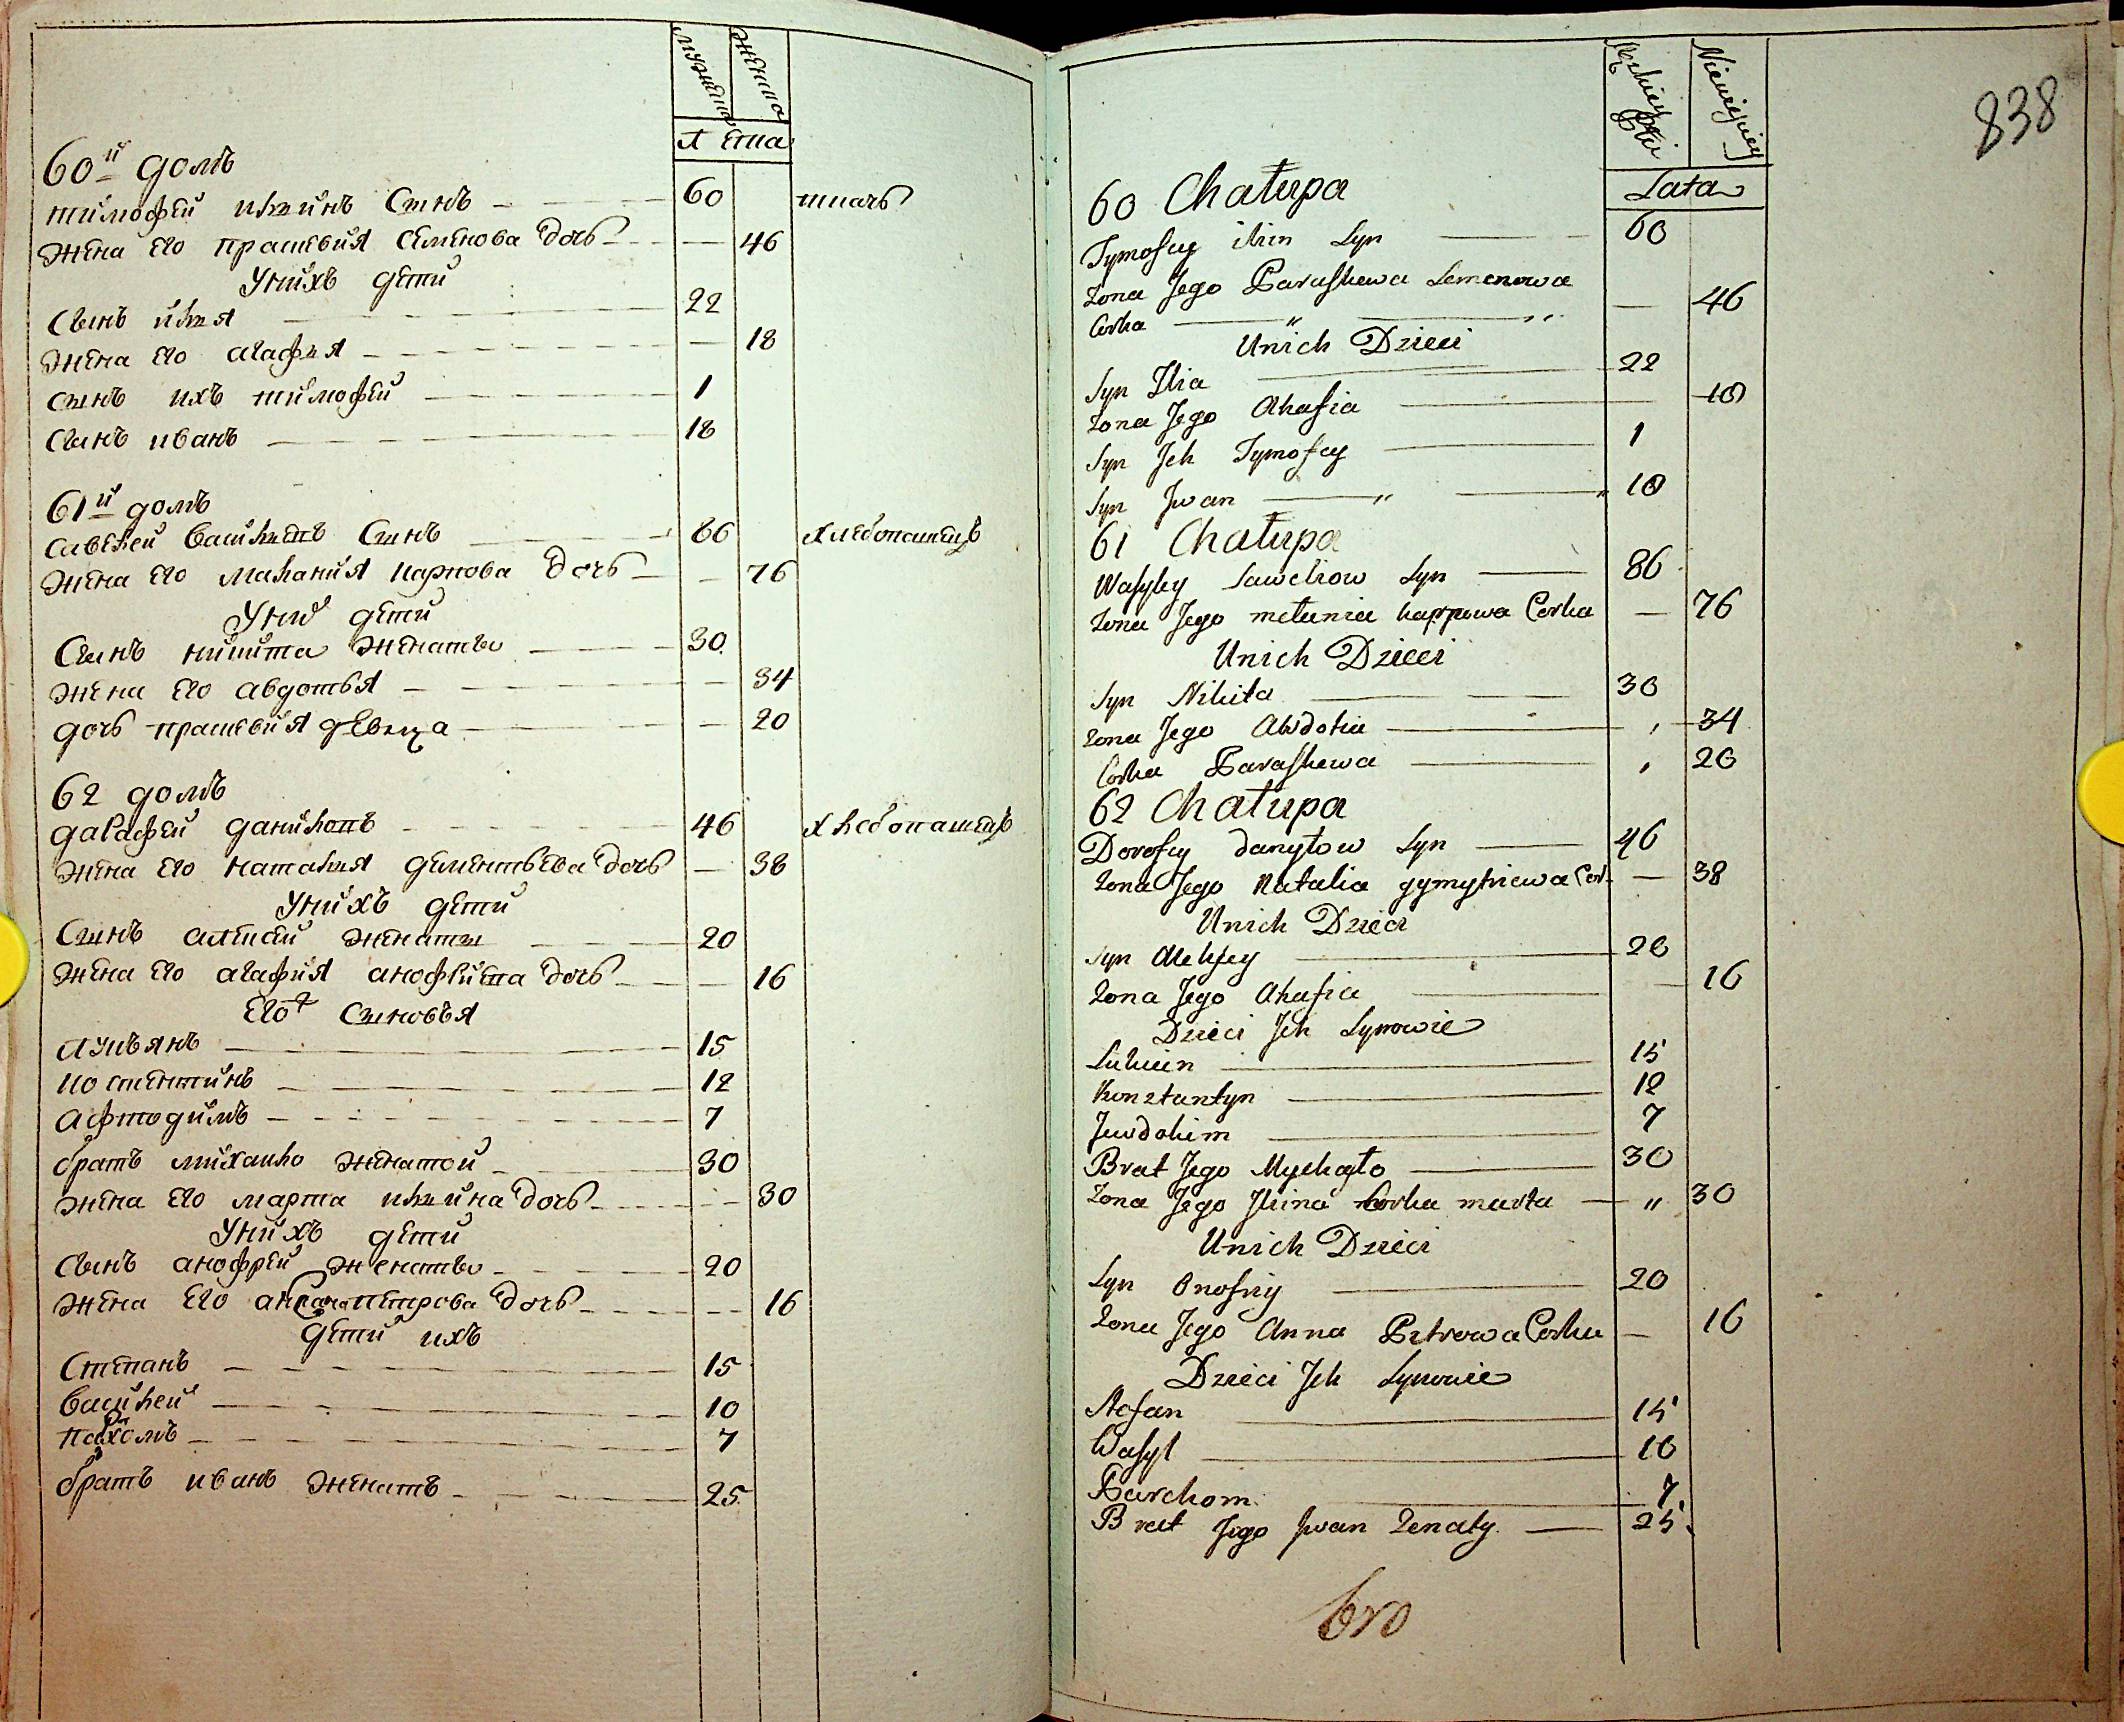 мужеска женска
лета
60й домъ
тимофей ильинъ Сынъ 60 ткачь
жена его прасковия семенова дочь 46
Унихъ дети
Сынъ илья 22
жена его агафья 18
сынъ ихъ тимофей 1
Сынъ иванъ 18
61й домъ
савелей васильевъ Сынъ 86 хлебопашецъ
жена его мелания карпова дочь 76
Уних дети
Сынъ никита женаты 30
жена его авдотья 34
дочь прасковия девица 20
62 домъ
дарафей даниловъ 46 хлебопашецъ
жена его наталья дементьева дочь 38
Унихъ дети
Сынъ алексей женаты 20
жена его агафия анофриева дочь 16
Его Сыновья
лукьянъ 15
костентинъ 12
афтодимъ 7
братъ михаило женатой 30
жена его марта ильина дочь 30
Унихъ дети
Сынъ анофрей женаты 20
жена его анна петрова дочь 16
дети ихъ
Степанъ 15
василей 10
пахомъ 7
братъ иванъ женатъ 25
838
Niewieściey
Lata
60 Chałupa
Tymofey ilin Syn 60
Zona Jego Paraskewa Semenowa 46
Corka
Unich Dzieci
Syn Ilia 22
Zona Jego Ahafia 18
Syn Jch Tymofey 1
Syn Jwan 18
61 Chałupa
Wasyley Saweliow Syn 86
Zona Jego melania karpowa Corka 76
Unich Dzieci
Syn Nikita 30
Zona Jego Abdotia 34
Corka Paraskewa 20
62 Chałupa
Dorofiy danyłow Syn 46
Zona Jego Natalia dymytriewa Cor. 38
Unich Dzieci
Syn Alexiey 20
Zona Jego Ahafia 16
Dzieci Jch Synowie
Lukian 15
Konstantyn 12
Jewdokim 7
Brat Jego Mychayło 30
Zona Jego Jlina Corka marta 30
Unich Dzieci
Syn Onofriy 20
Zona Jego Anna Petrowa Corka 16
Dzieci Jch Synowie
Stefan 15
Wasyl 10
Parchom 7
Brat Jego Jwan Żenaty. 25